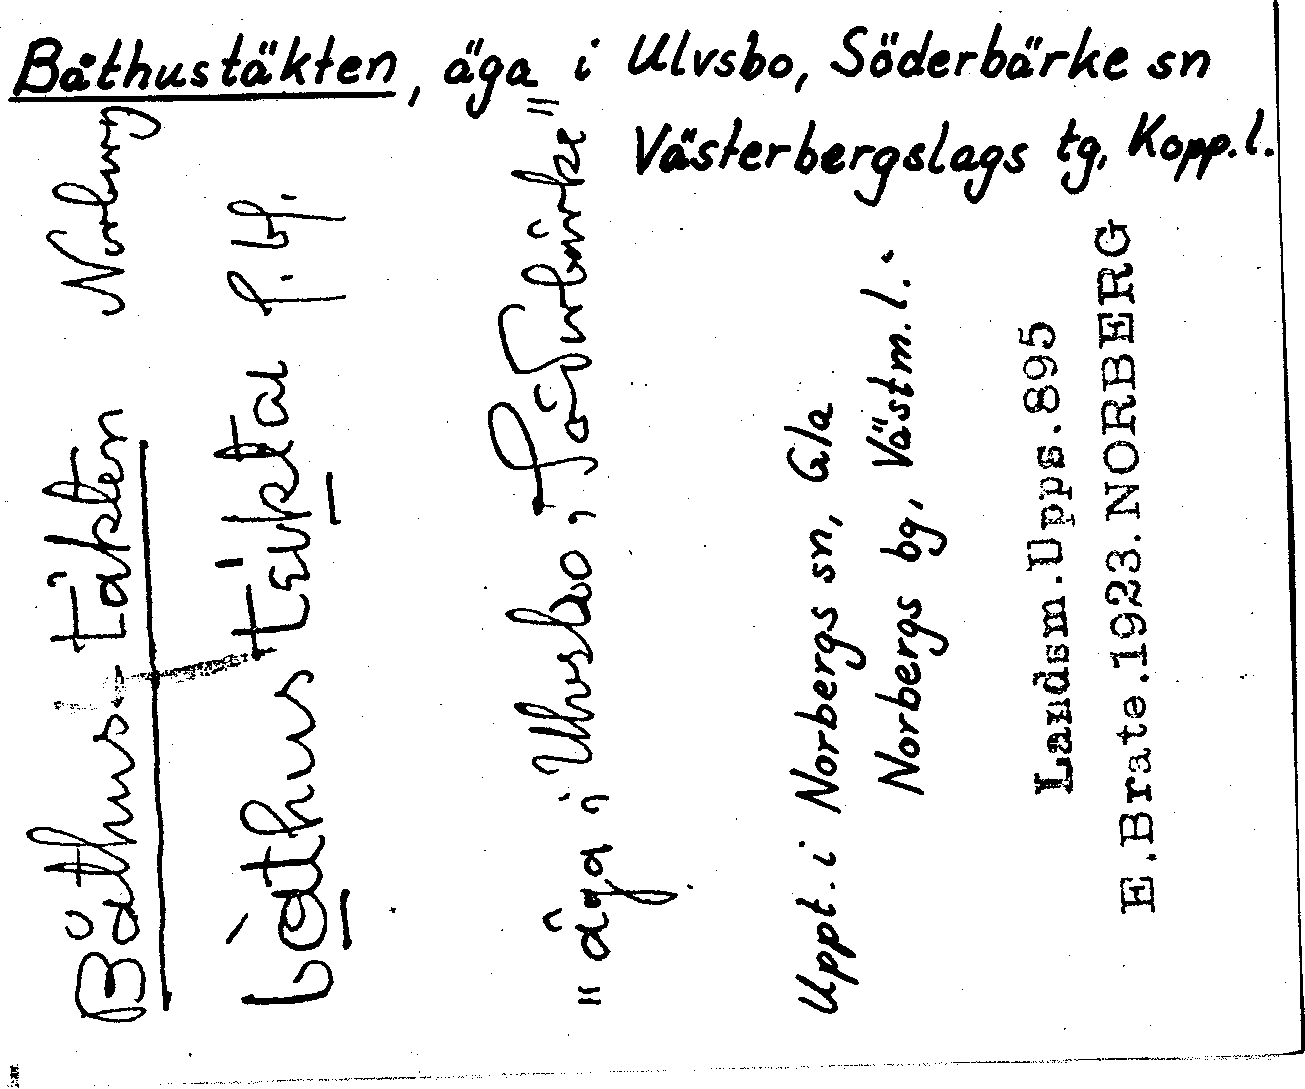 Båthustäkten, äga i Ulvsbo, Söderbärke sn
Västerbergslags tg, Kopp.l.
Båthus-täkten Norburg
"äga i Ulvsbo, Söderbärke"
Uppt. i Norbergs sn, Gla
Norbergs bg, Västm.l.
Landsm.Upps.895
E.Brate.1923.NORBERG